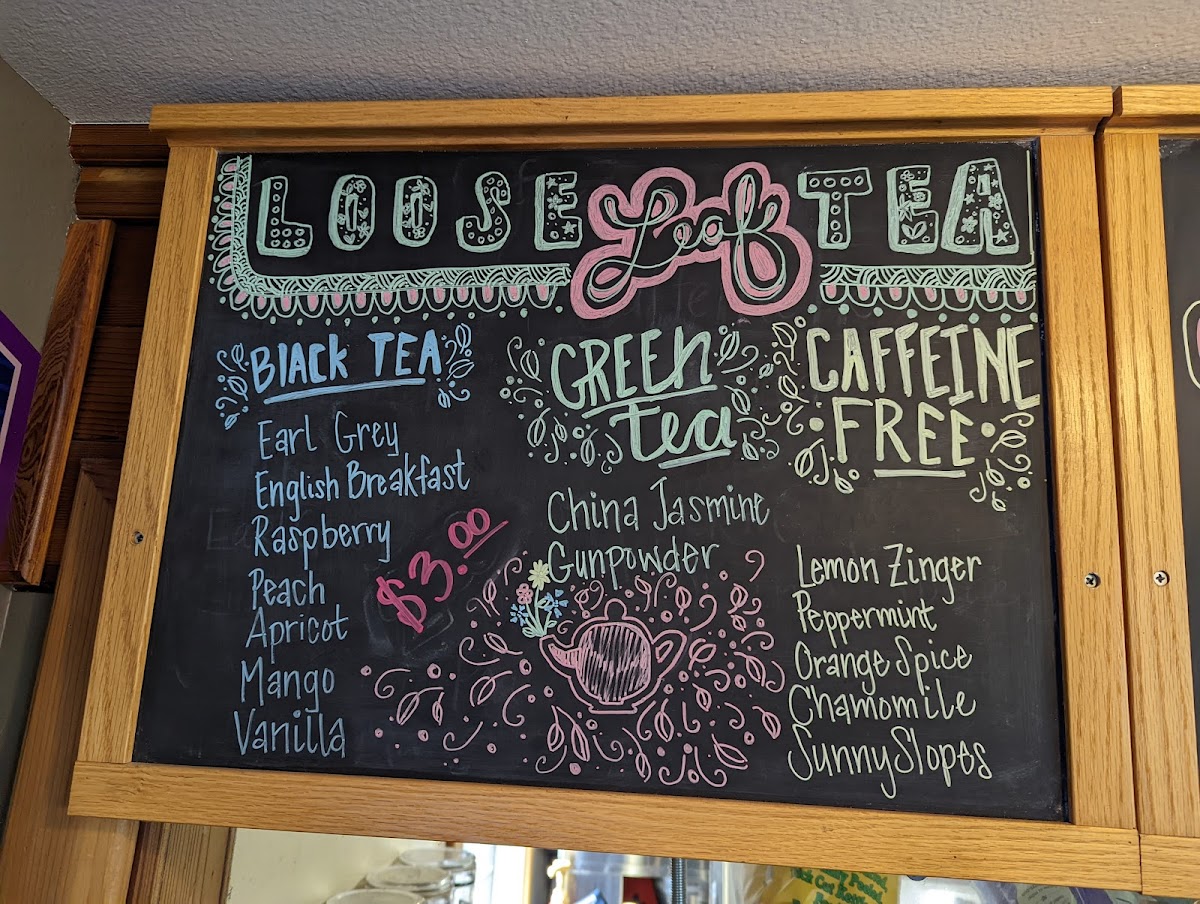 LOOSE Leaf TEA
BlACK TEA
Earl Grey
English Breakfast
Raspberry
Peach
Apricot
Mango
Vanilla
$3.00
GREEn
tea
China Jasmine
Gunpowder
CAFFEINE
FREE
Lemon Zinger
Peppermint
Orange Spice
Chamomile
Sunny Slopes